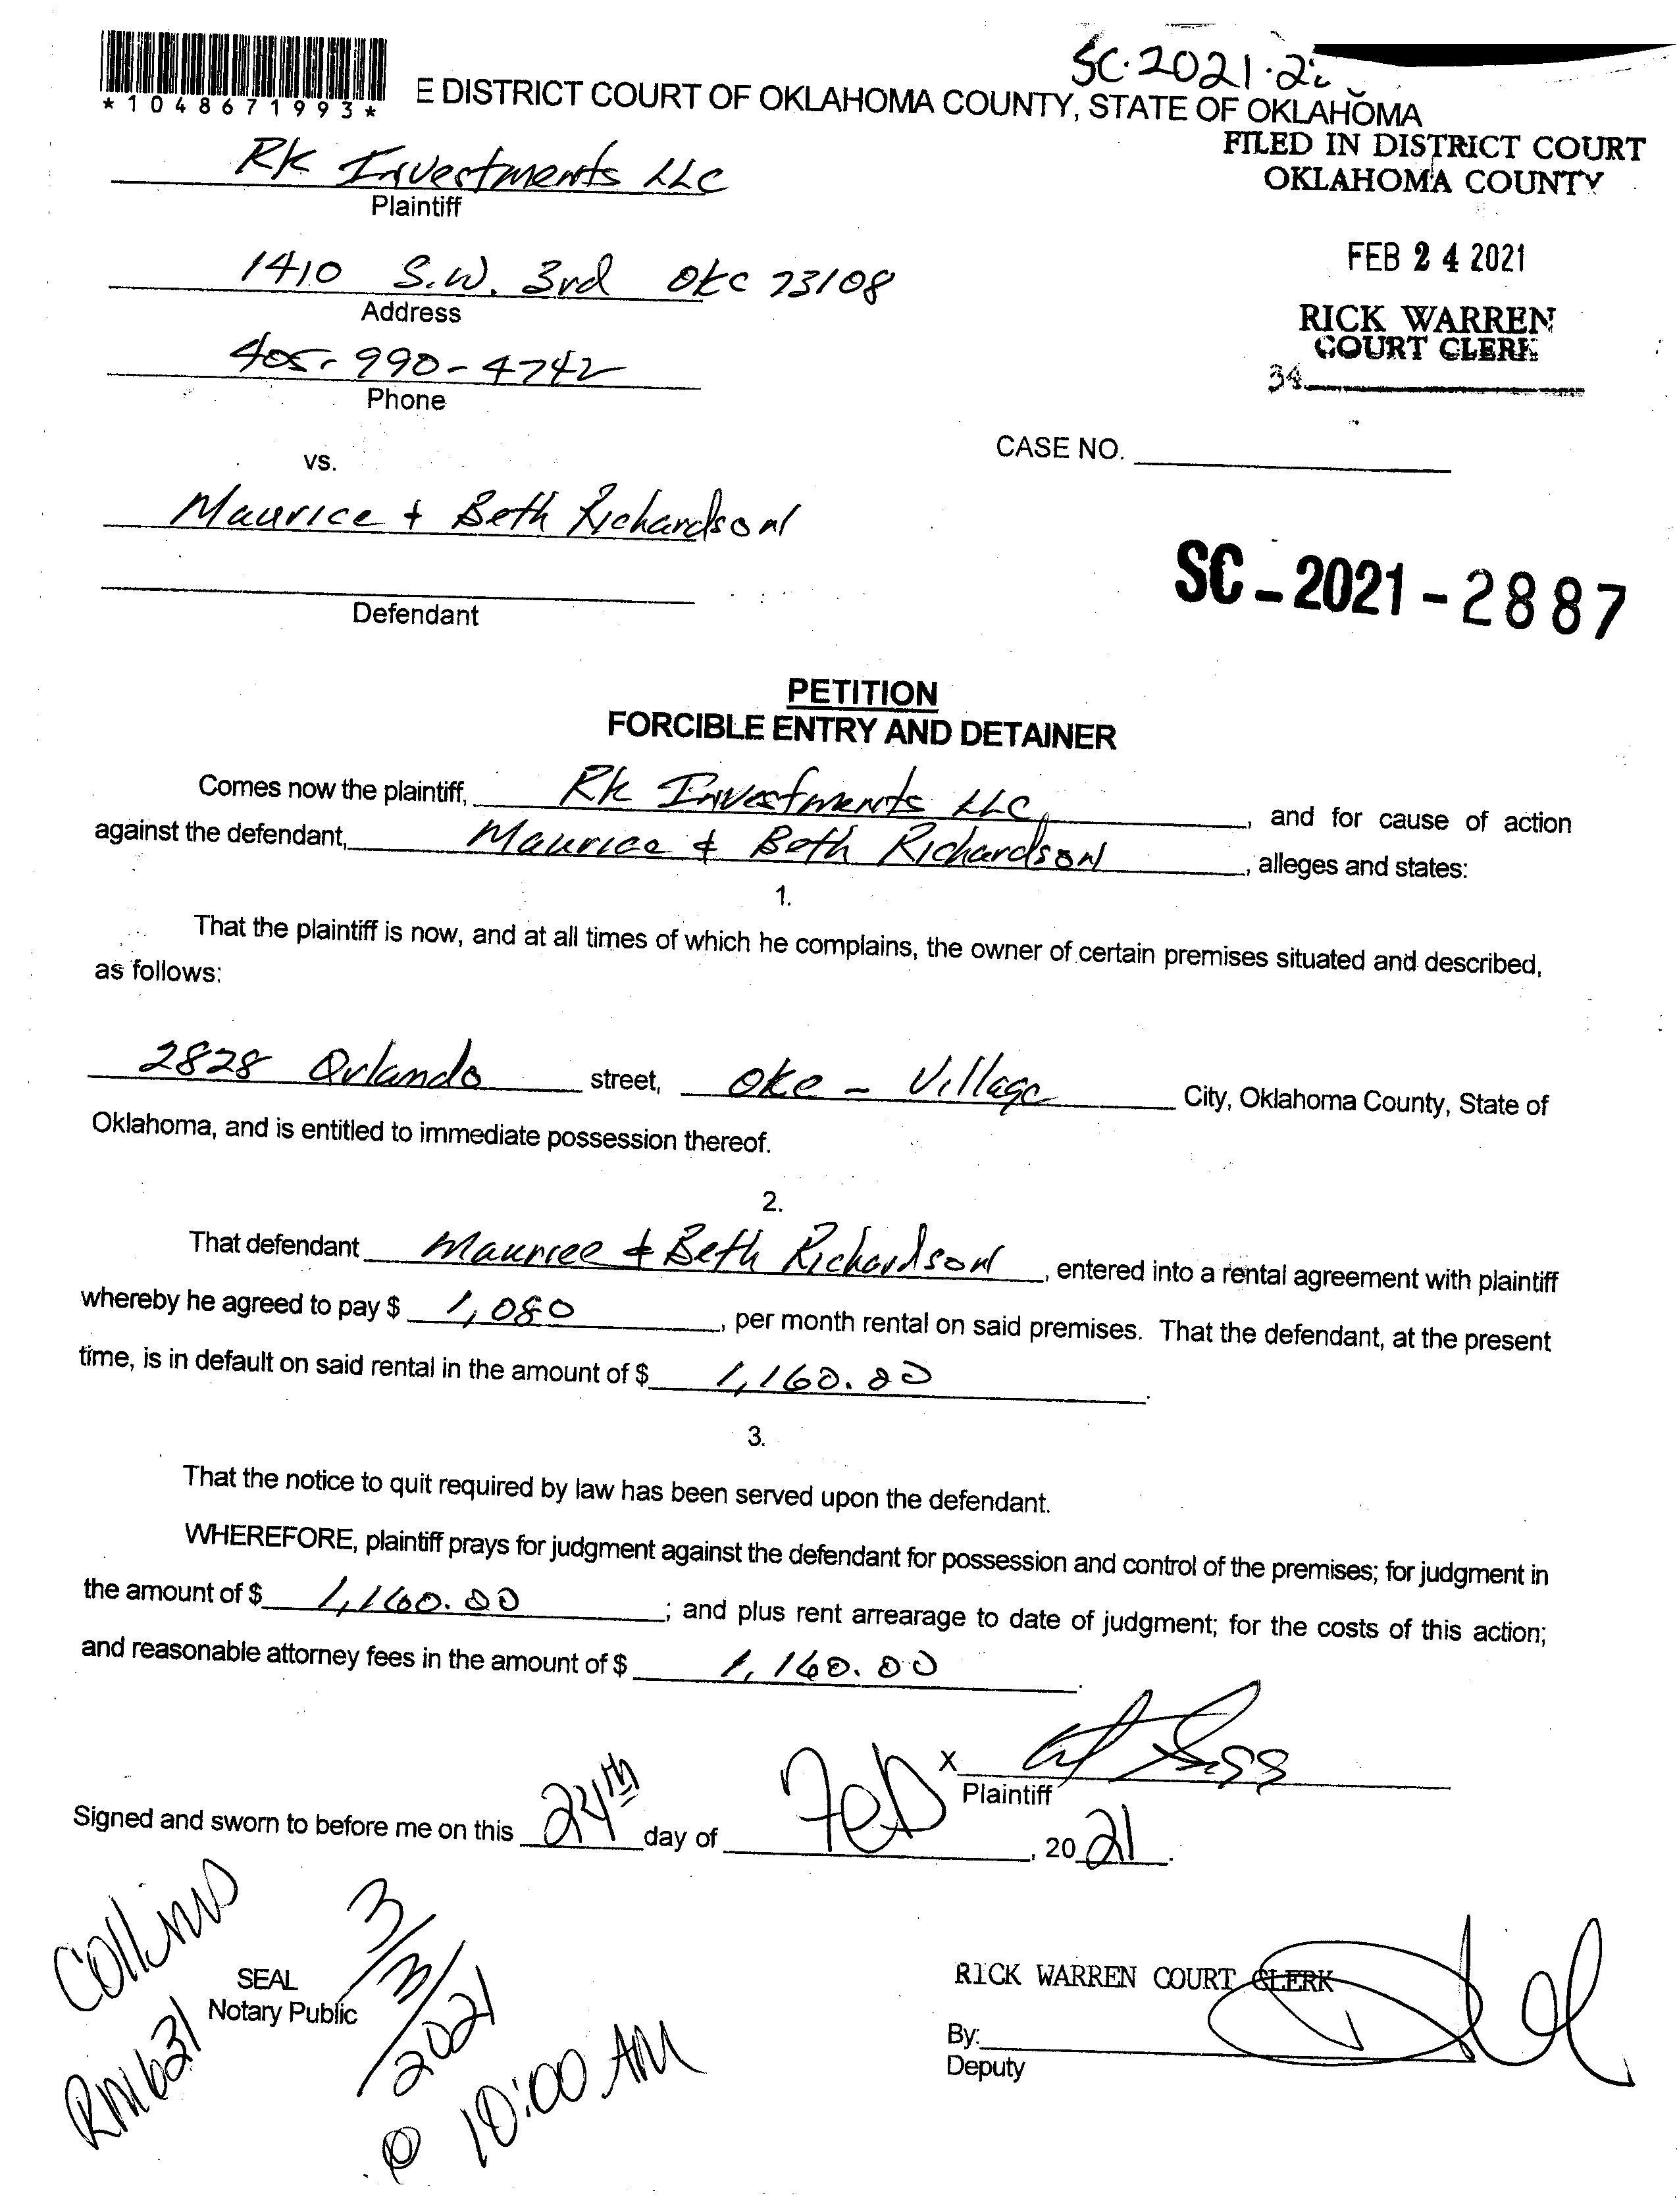 SC-2021-2
*1048671993*
E DISTRICT COURT OF OKLAHOMA COUNTY, STATE OF OKLAHOMA
FILED IN DISTRICT COURT
OKLAHOMA COUNTY
RK Investments LLC
Plaintiff
FEB 24 2021
1410 S.W. 3rd OKC 73108
Address
RICK WARREN
COURT CLERK
405-990-4742
34
Phone
CASE NO.
vs.
Maurice + Beth Richardson
SC-2021-2887
Defendant
PETITION
FORCIBLE ENTRY AND DETAINER
Comes now the plaintiff, RK Investments LLC, and for cause of action
against the defendant, Maurice + Beth Richardson, alleges and states:
1.
That the plaintiff is now, and at all times of which he complains, the owner of certain premises situated and described,
as follows:
2828 Orlando street, OKC - Village City, Oklahoma County, State of
Oklahoma, and is entitled to immediate possession thereof.
2.
That defendant Maurice + Beth Richardson, entered into a rental agreement with plaintiff
whereby he agreed to pay $ 1,080, per month rental on said premises. That the defendant, at the present
time, is in default on said rental in the amount of $ 1,160.00.
3.
That the notice to quit required by law has been served upon the defendant.
WHEREFORE, plaintiff prays for judgment against the defendant for possession and control of the premises; for judgment in
the amount of $ 1,160.00; and plus rent arrearage to date of judgment; for the costs of this action;
and reasonable attorney fees in the amount of $ 1,160.00.
X
Plaintiff
Signed and sworn to before me on this 24th day of Feb, 2021.
Collins
RM 631
3/3/2021
@ 10:00 AM
SEAL
Notary Public
RICK WARREN COURT CLERK
By:
Deputy